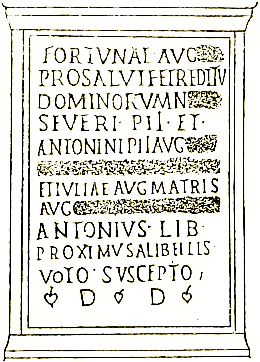 FORTVNAE AVG
PRO SALVTE ET REDITV
DOMINORVM N
SEVERI · PII · ET ·
ANTONINI PII AVG
ET IVLIAE AVG MATRIS
AVG
ANTONIUS · LIB ·
PROXIMVS A LIBELLIS
VOTO · SVSCEPTO ,
D D